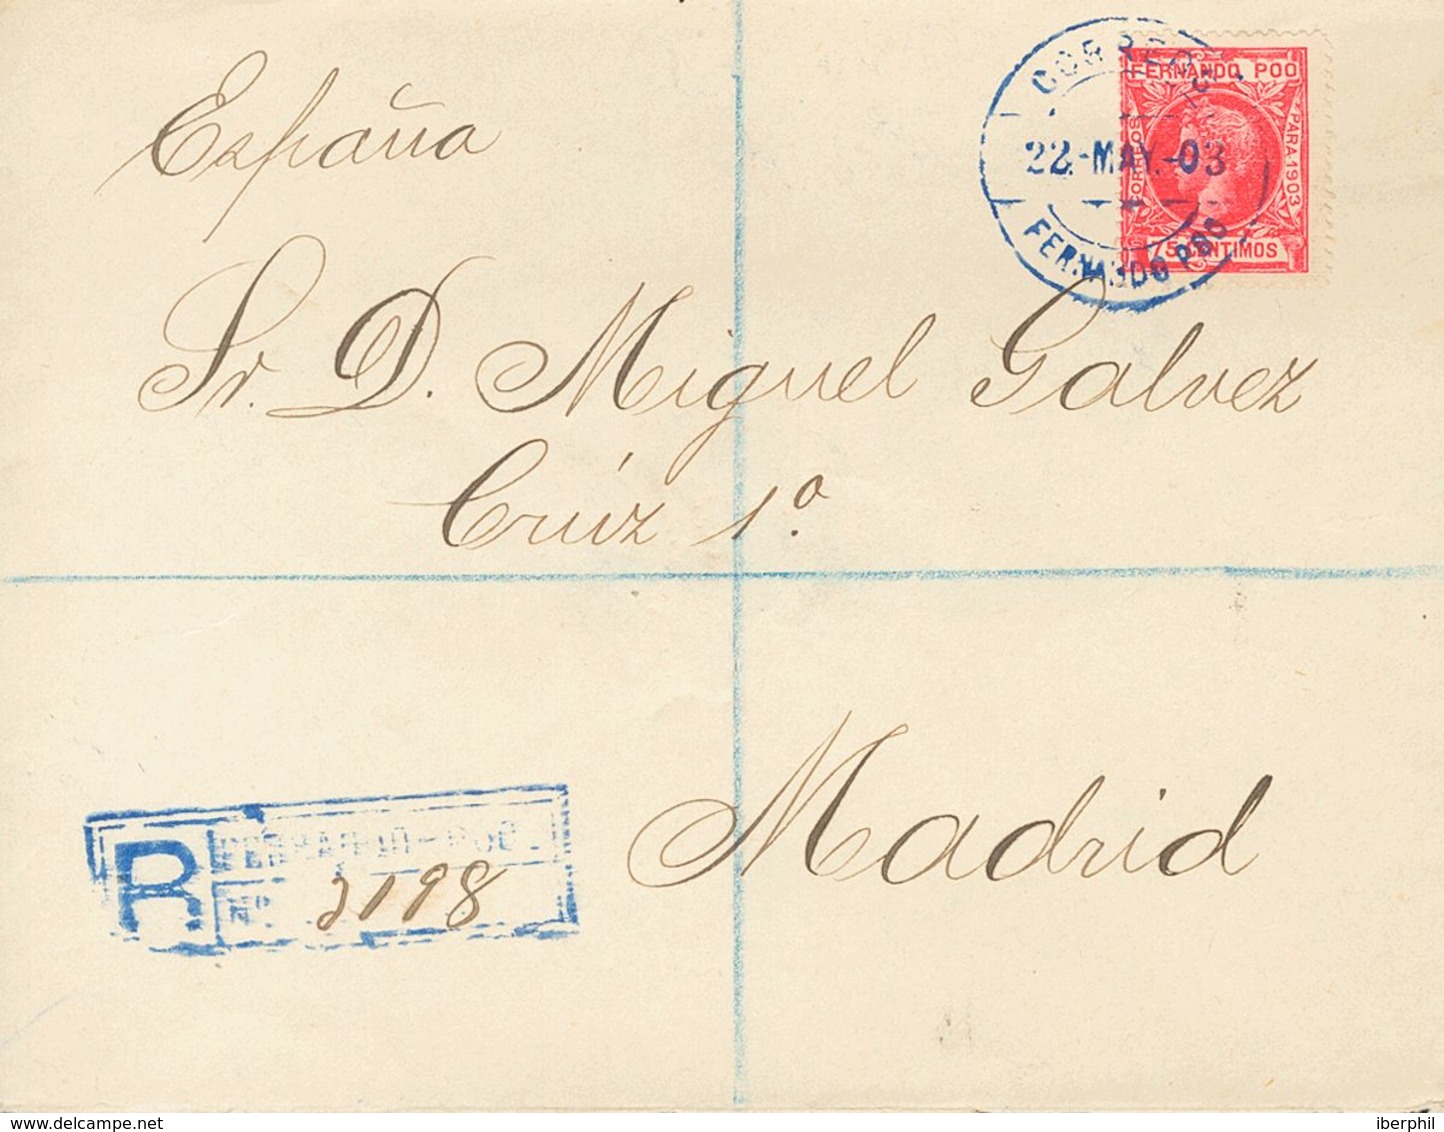 España
CORREOS
22.-MAY.-03
FERNANDO POO
FERNANDO POO
CORREOS
PARA 1903
75 CENTIMOS
Sr. D. Miguel Galvez
Cruz 1.º
Madrid
R
FERNANDO-POO.
Nº. 2198
delcampe.net
iberphil